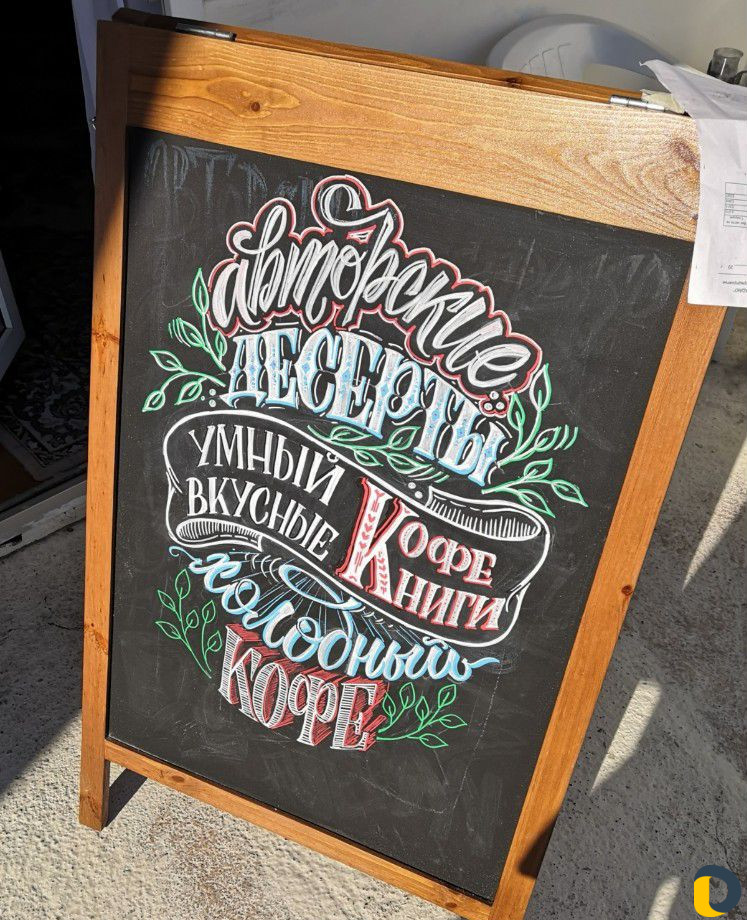 авторские
ДЕСЕРТЫ
УМНЫЙ КОФЕ
ВКУСНЫЕ КНИГИ
холодный
КОФЕ